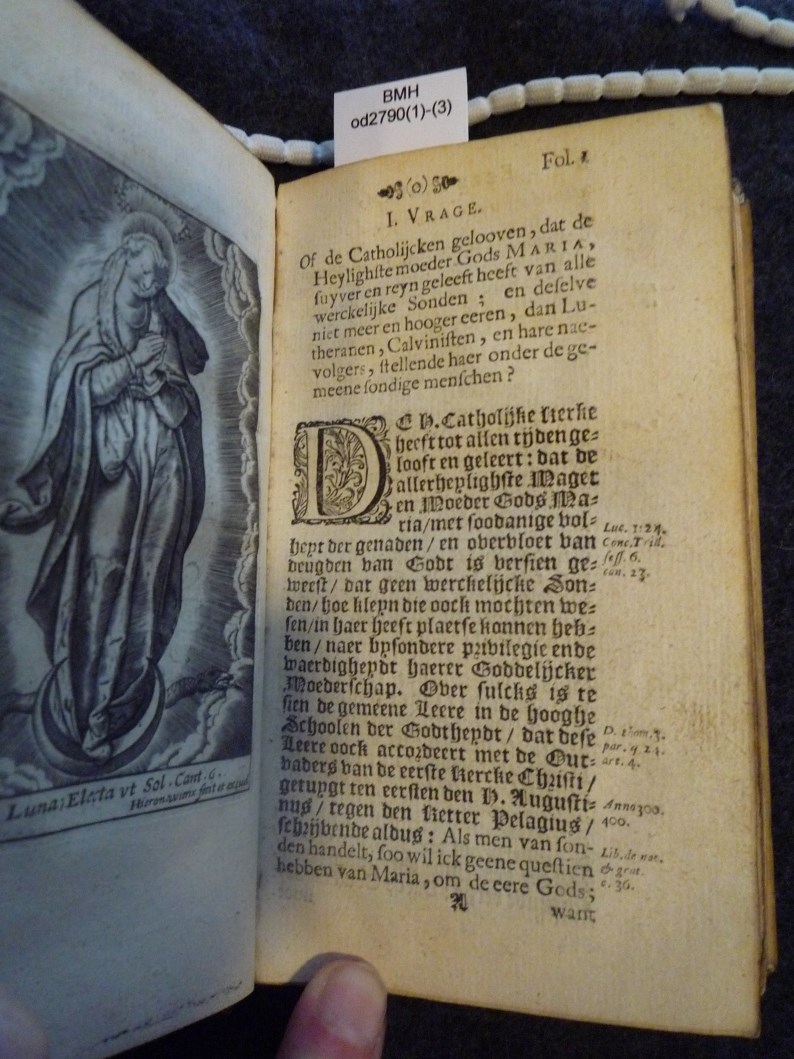 BMH
od2790(1)-(3)
Luna; Electa vt Sol. Cant. 6.
Hieron. wierx fecit et excud
(o)
Fol. 1
I. VRAGE.
Of de Catholijcken gelooven, dat de
Heylighſte moeder Gods MARIA,
ſuyver en reyn geleeft heeft van alle
werckelijke Sonden; en deſelve
niet meer en hooger eeren, dan Lu-
theranen, Calviniſten, en hare nae-
volgers, ſtellende haer onder de ge-
meene ſondige menſchen?
DE H. Catholijke Kerke
heeft tot allen tijden ge-
looft en geleert: dat de
allerheylighſte Maget
en Moeder Gods Ma-
ria/met ſoodanige vol-
heyt der genaden/ en overvloet van
deugden van Godt is verſien ge-
weeſt/ dat geen werckelijcke Son-
den/ hoe kleyn die oock mochten we-
ſen/in haer heeft plaetſe konnen heb-
ben/ naer byſondere privilegie ende
waerdigheydt haerer Goddelijcker
Moederſchap. Over ſulcks is te
ſien de gemeene Leere in de hooghe
Schoolen der Godtheydt/ dat deſe
Leere oock accordeert met de Out-
vaders van de eerſte Kercke Chriſti/
getuygt ten eerſten den H. Auguſti-
nus/ tegen den Ketter Pelagius/
ſchrijvende aldus: Als men van ſon-
den handelt, ſoo wil ick geene queſtien
hebben van Maria, om de eere Gods;
A
want
Luc. 1:24.
Conc. Trid.
ſeſſ. 6.
can. 23.
D. thom. 3.
par. q. 24.
art. 4.
Anno 300.
400.
Lib. de nat.
& grat.
c. 36.